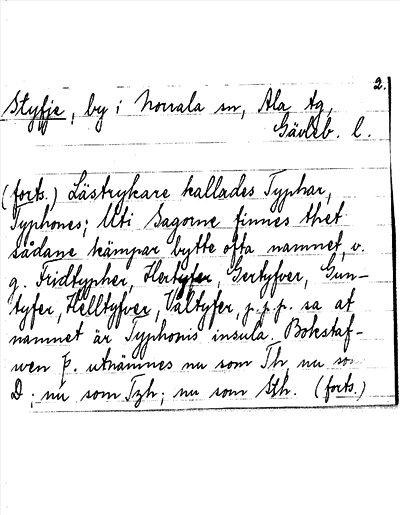 2.
Styfje, by i Norrala sn, Ala tg,
Gävleb. l.
(forts.) Lästrykare kallades Typhar,
Typhones; Uti Sagorne finnes thet
sådane kämpar bytte ofta namnet, v.
g. Fridtypher, Hertyfer, Gertyfver, Gun-
tyfer, Helltyfver, Valtyfer, p.p.p. sa at
namnet är Typhonis insula. Bokstaf-
wen þ. utnämnes nu som Th, nu so
D; nu som Tzh; nu som Sth. (forts.)